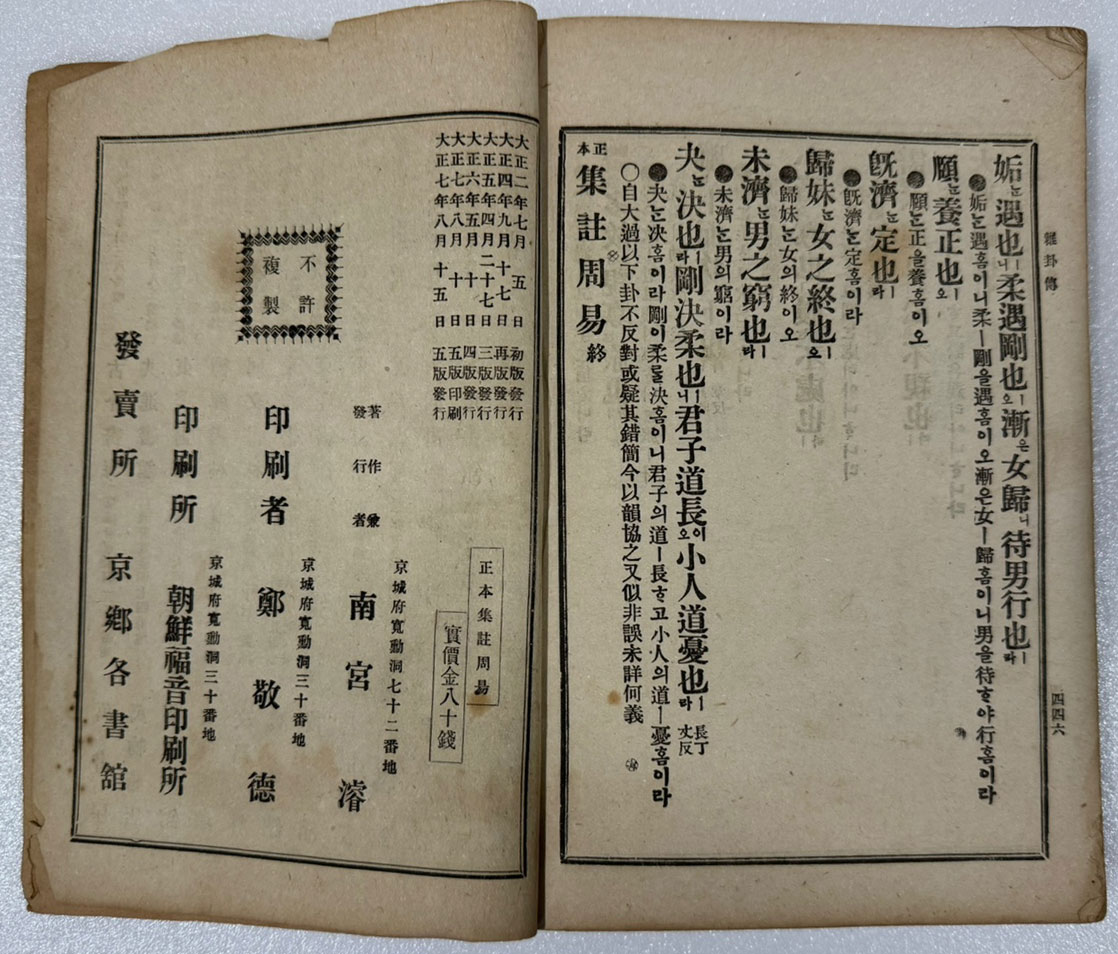 雜卦傳
四四六
姤는遇也ㅣ니柔遇剛也ㅣ오漸은女歸니待男行也ㅣ라
姤는遇홈이니柔ㅣ剛을遇홈이오漸은女ㅣ歸홈이니男을待ᄒᆞ야行홈이라
頤는養正也ㅣ오
頤는正을養홈이오
旣濟는定也ㅣ라
旣濟는定홈이라
歸妹는女之終也ㅣ오
歸妹는女의終이오
未濟는男之窮也ㅣ라
未濟는男의窮이라
夬는決也ㅣ라剛決柔也ㅣ니君子道長이오小人道憂也ㅣ라 長丁丈反
夬는決홈이라剛이柔를決홈이니君子의道ㅣ長ᄒᆞ고小人의道ㅣ憂홈이라
○自大過以下卦不反對或疑其錯簡今以韻協之又似非誤未詳何義
正本集註周易終
大正二年七月五日初版發行
大正四年九月十七日再版發行
大正五年四月二十七日三版發行
大正六年五月十日四版發行
大正七年八月十日五版印刷
大正七年八月十五日五版發行
不許
複製
正本集註周易
實價金八十錢
京城府寬勳洞七十二番地
著作兼
發行者 南宮濬
京城府寬勳洞三十番地
印刷者 鄭敬德
京城府寬勳洞三十番地
印刷所 朝鮮福音印刷所
發賣所 京鄕各書舘